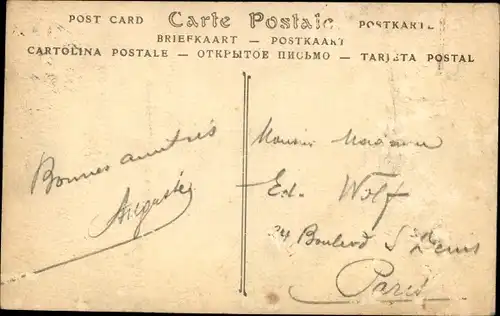 POST CARD Carte Postale POSTKARTE
BRIEFKAART — POSTKAART
CARTOLINA POSTALE — ОТКРЫТОЕ ПИСЬМО — TARJETA POSTAL
Bonnes amitiés
Auguste
Monsieur Madame
Ed. Wolf
24 Boulevd St Denis
Paris